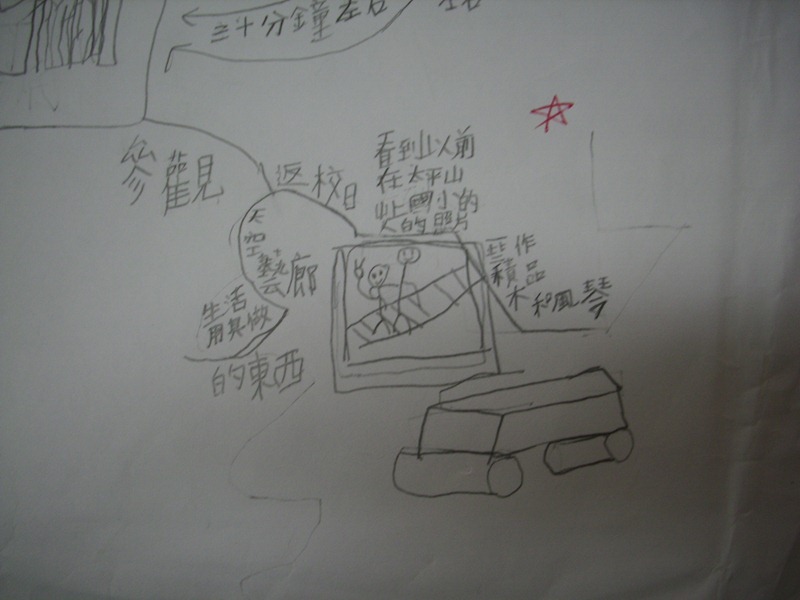 三十分鐘左右
左右
參觀
返校日
看到以前
在太平山
山上國小的
人的照片
天空藝廊
生活
用具做
的東西
一些作品
積木和風琴